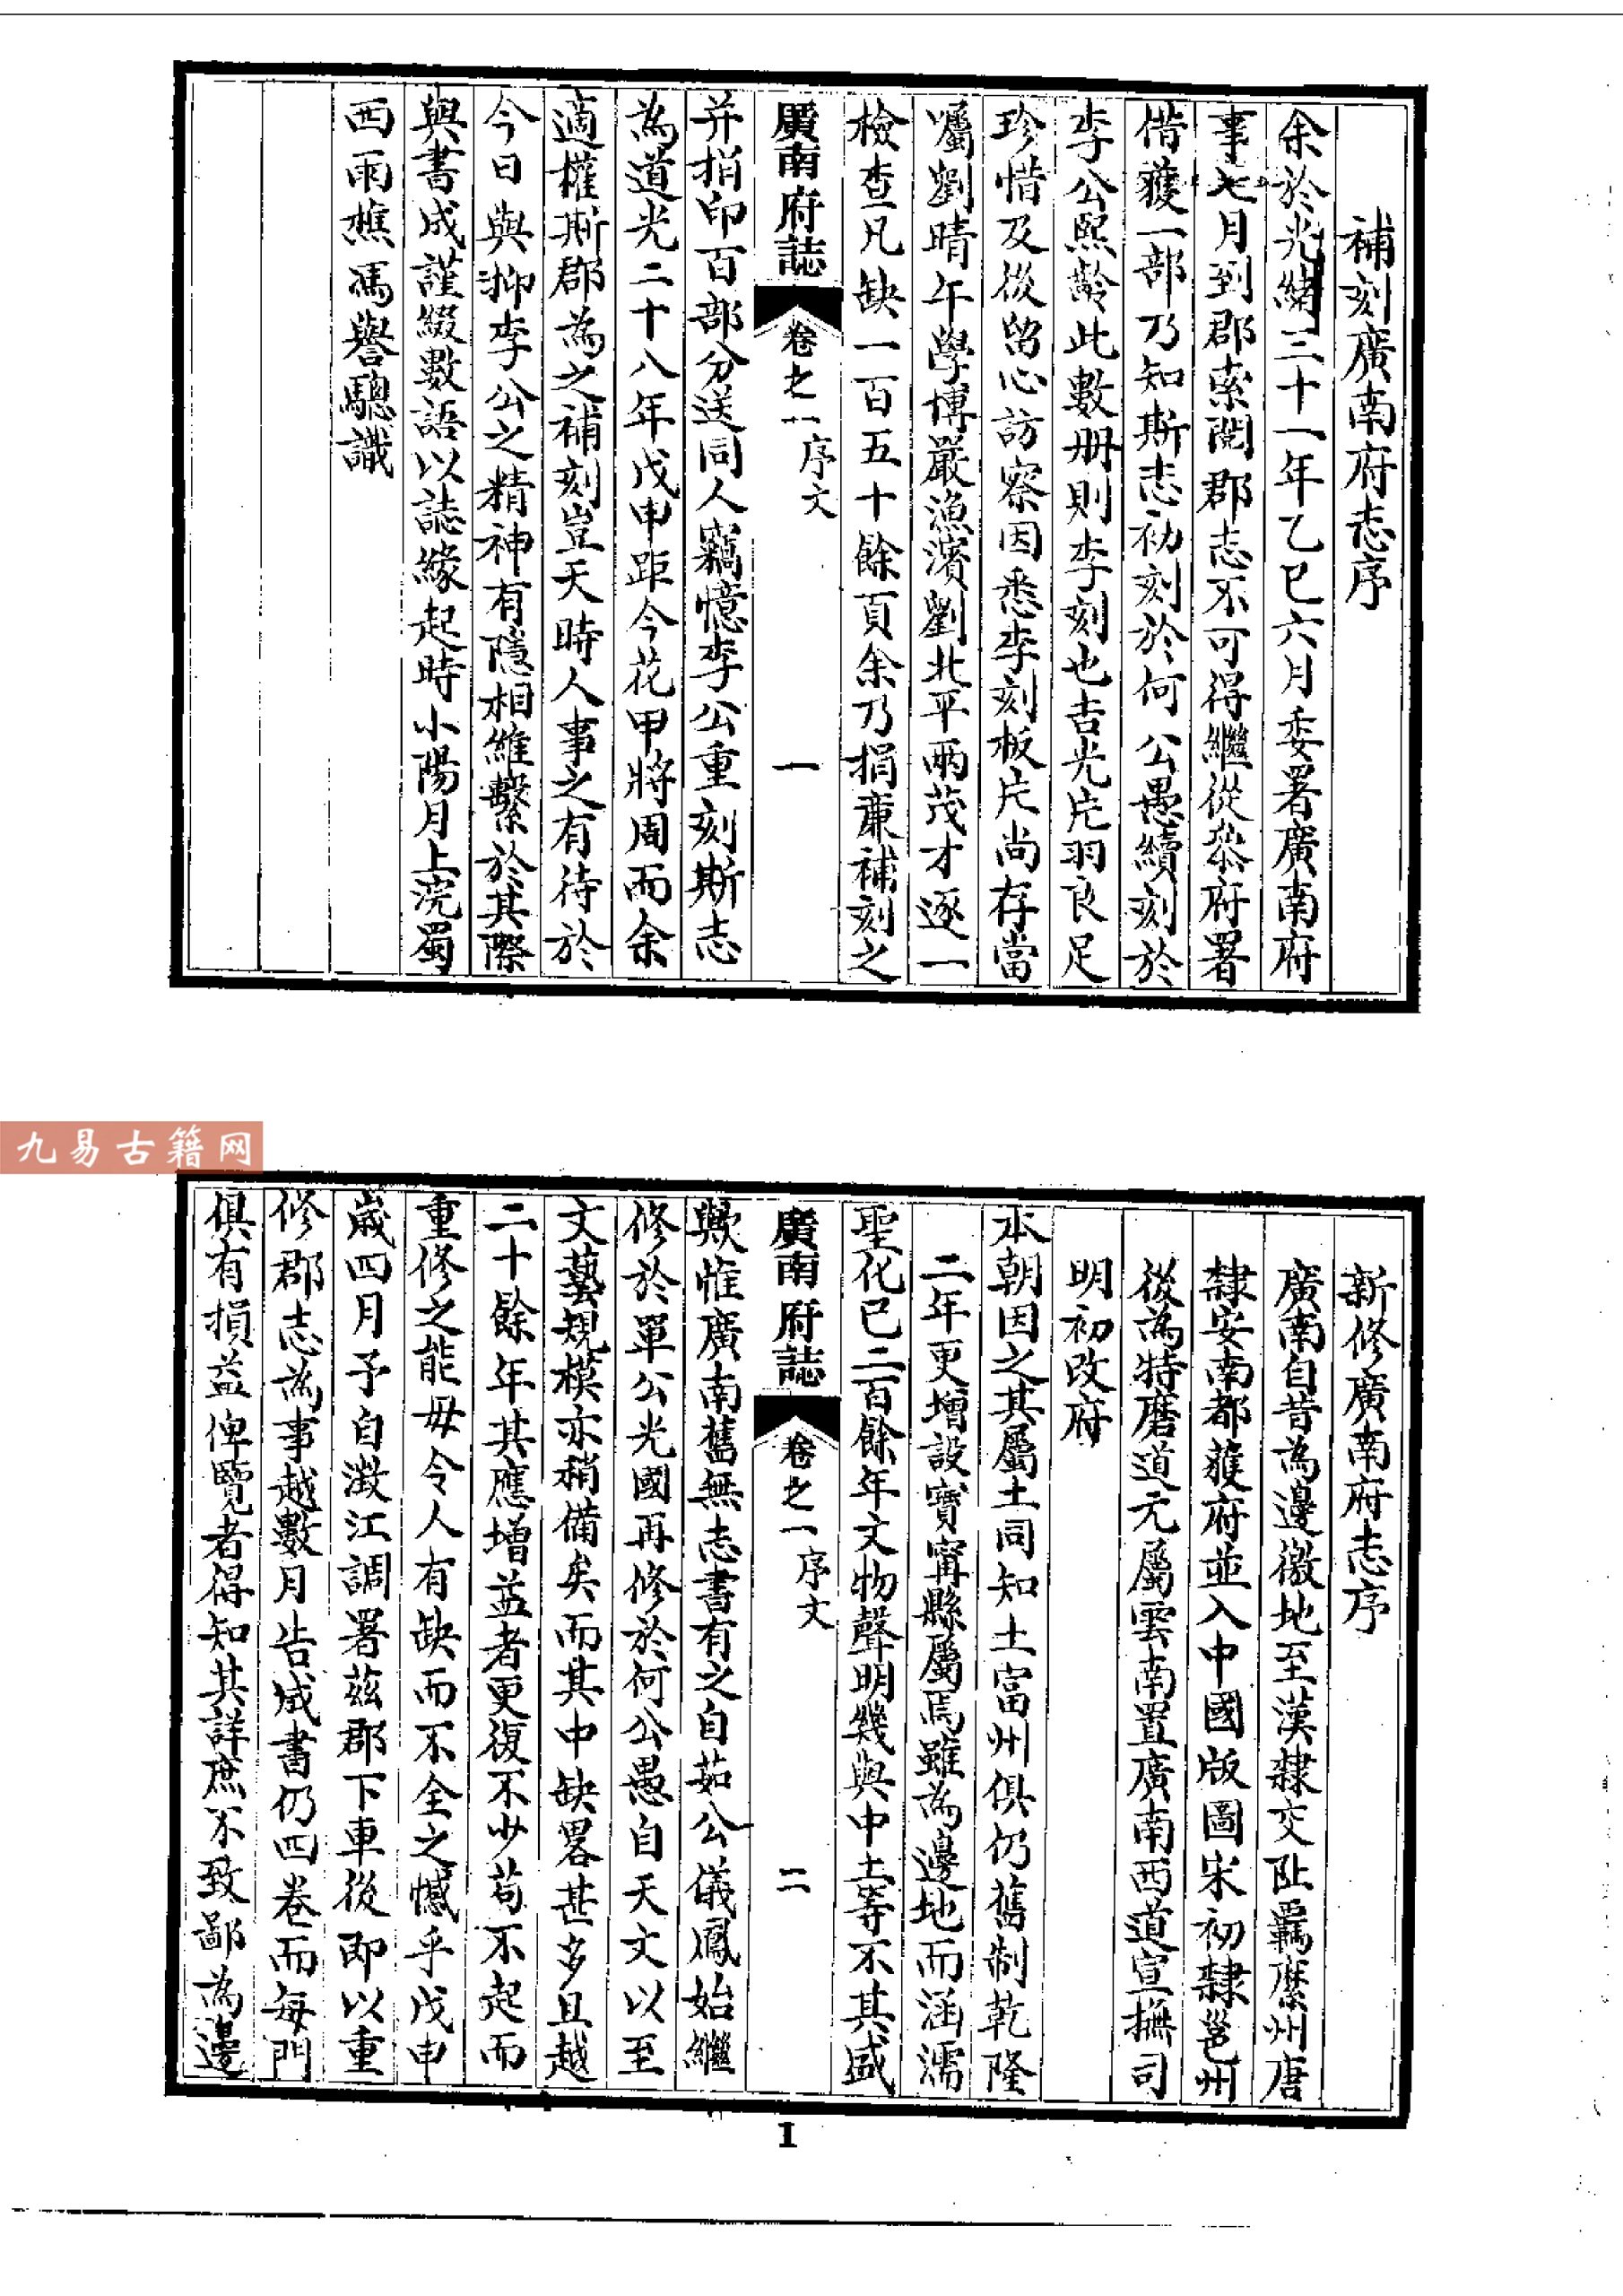 補刻廣南府志序
余於光緒三十一年乙巳六月委署廣南府
事七月到郡索閱郡志不可得繼從叅府署
借獲一部乃知斯志初刻於何公愚續刻於
李公熙齡此數册則李刻也吉光片羽良足
珍惜及後留心訪察因悉李刻板片尚存當
囑劉晴午學博嚴漁濱劉北平兩茂才逐一
檢查凡缺一百五十餘頁余乃捐亷補刻之
廣南府誌 卷之一 序文 一
并捐印百部分送同人竊憶李公重刻斯志
為道光二十八年戊申距今花甲將周而余
適權斯郡為之補刻豈天時人事之有待於
今日與抑李公之精神有隱相維繫於其際
與書成謹綴數語以誌緣起時小陽月上浣蜀
西雨樵馮譽驄識
九易古籍网
新修廣南府志序
廣南自昔為邊徼地至漢隸交阯羈縻州唐
隸安南都護府並入中國版圖宋初隸邕州
後為特磨道元屬雲南置廣南西道宣撫司
明初改府
本朝因之其屬土同知土富州俱仍舊制乾隆
二年更增設寶甯縣屬焉雖為邊地而涵濡
聖化已二百餘年文物聲明幾與中土等不其盛
廣南府誌 卷之一 序文 二
歟惟廣南舊無志書有之自茹公儀鳳始繼
修於單公光國再修於何公愚自天文以至
文藝規模亦稍備矣而其中缺畧甚多且越
二十餘年其應增益者更復不少苟不起而
重修之能毋令人有缺而不全之憾乎戊申
歲四月予自澂江調署茲郡下車後即以重
修郡志為事越數月告成書仍四卷而每門
俱有損益俾覽者得知其詳庶不致鄙為邊
1